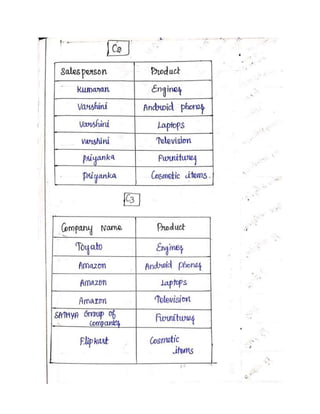 C2
Salesperson Product
Kumaran Engines
Varshini Android phones
Varshini Laptops
Varshini Television
Priyanka Furnitures
Priyanka Cosmetic items.
C3
Company Name Product
Toyato Engines
Amazon Android phones
Amazon Laptops
Amazon Television
SATHYA Group of companies Furnitures
Flipkart Cosmetic items